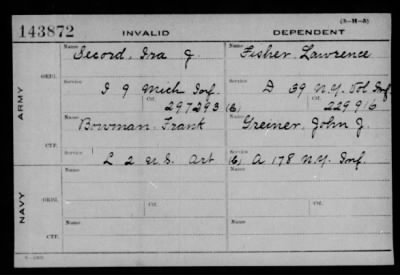 (3-H-5)
143872 INVALID DEPENDENT
Name Secord, Ira J. Name Fisher, Lawrence
ARMY
ORIG.
Service I 9 Mich Inf. Service D 39 N.Y. Vol Inf
Ctf. 297293 (6) Ctf. 229916
Name Bowman, Frank Name Greiner, John J.
CTF.
Service L 2 U.S. Art Service (6) A 178 N.Y. Inf.
NAVY
Name Name
ORIG.
Ctf. Ctf.
Name Name
CTF.